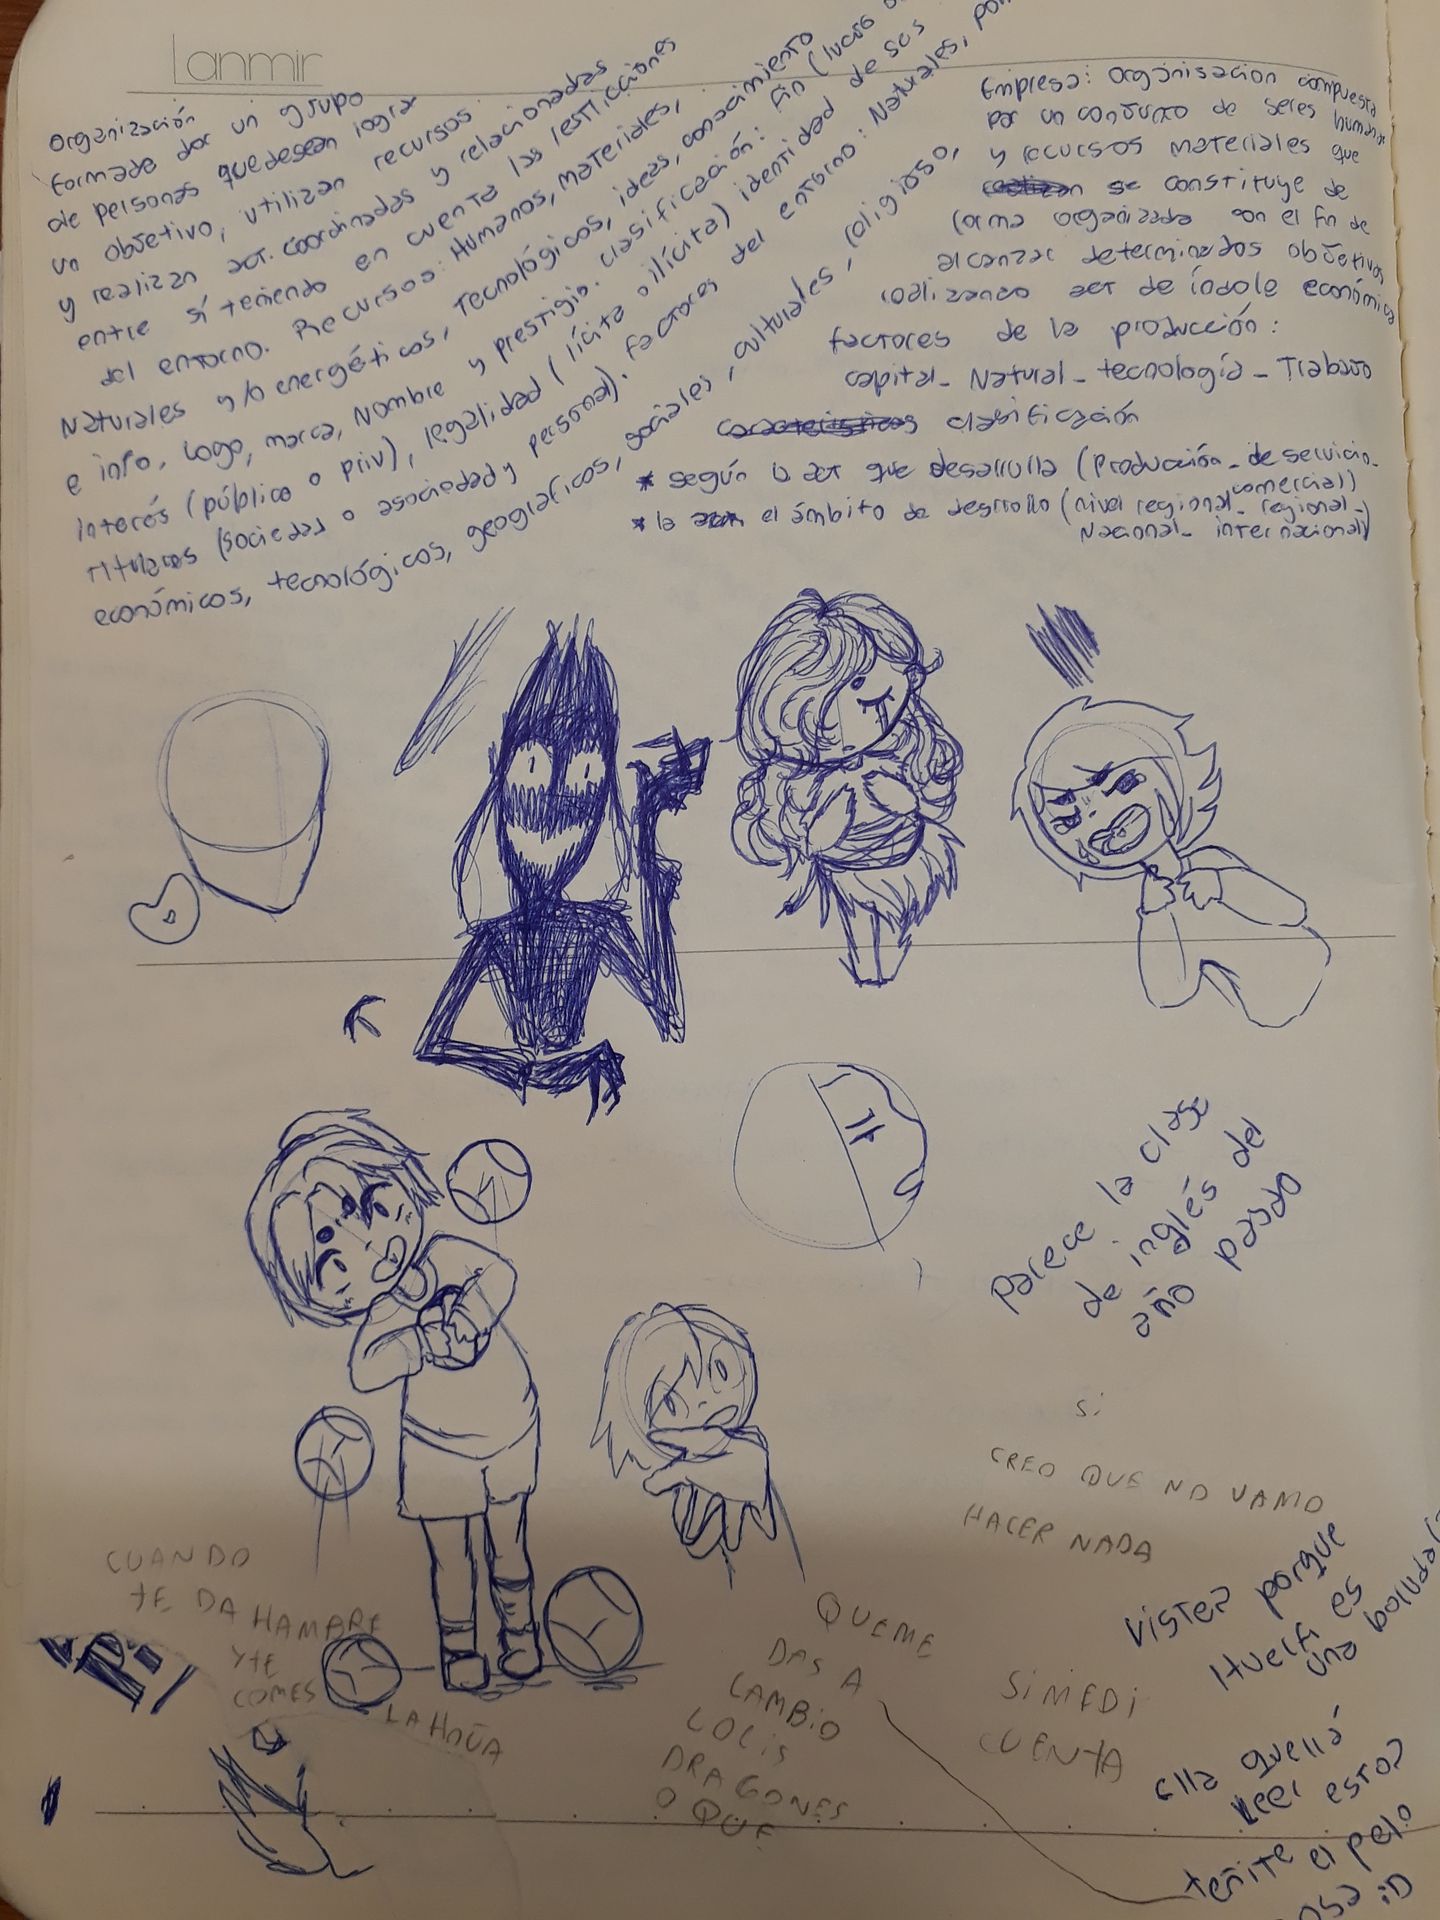 Lanmir
Organización
formada por un grupo
de personas que desean lograr
un objetivo, utilizan recursos
y realizan act. coordinadas y relacionadas
entre sí teniendo en cuenta las resticciones
del entorno. Recursos: Humanos, materiales,
Naturales y/o energéticos, Tecnológicos, ideas, conocimiento
e info, Logo, marca, Nombre y prestigio. clasificación: Fin (lucro
Interés (público o priv), legalidad (lícita o ilícita) identidad de sus
titulares (sociedad o asociedad y personal). Factores del entorno: Naturales,
económicos, tecnológicos, geograficos, sociales, culturales, religioso,
Empresa: Organisacion compuesta
por un conjunto de seres humanos
y recursos materiales que
se constituye de
forma organizada con el fin de
alcanzar determinados objetivos
realizando act de índole económica
factores de la producción:
capital - Natural - tecnología - Trabajo
caracteristicas clasificación
* según la act que desarrolla (Producción - de servicio -
comercial)
* la el ámbito de desrrollo (nivel regional - regional -
Nacional - internacional)
Parece la clase
de inglés del
año pasado
Si
CREO QUE NO VAMO
HACER NADA
vistes porque
es
una boluda
CUANDO
TE DA HAMBRE
Y TE
COMES
LA HOJA
QUEME
DAS A
CAMBIO
LOLIS
DRAGONES
O QUE
Si MEDI
CUENTA
ella querrá
leer esto?
teñite el pelo
:D